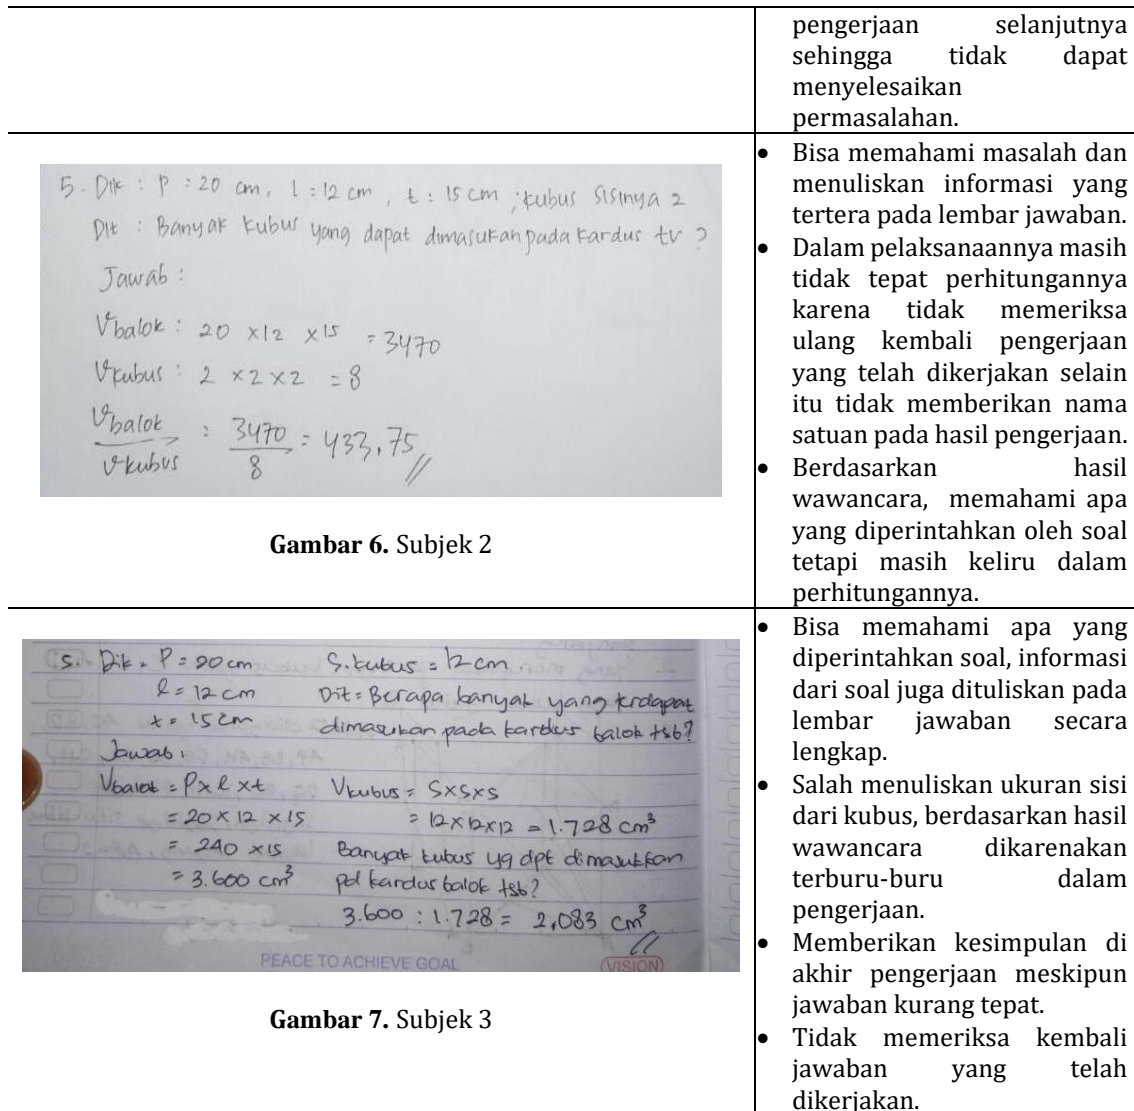 pengerjaan selanjutnya
sehingga tidak dapat
menyelesaikan
permasalahan.
5. Dik : P : 20 cm, l : 12 cm, t : 15 cm ; kubus sisinya 2
Dit : Banyak kubus yang dapat dimasukan pada kardus tv ?
Jawab :
Vbalok : 20 x 12 x 15 = 3470
Vkubus : 2 x 2 x 2 = 8
Vbalok / Vkubus : 3470 / 8 = 433,75 //
Gambar 6. Subjek 2
• Bisa memahami masalah dan
menuliskan informasi yang
tertera pada lembar jawaban.
• Dalam pelaksanaannya masih
tidak tepat perhitungannya
karena tidak memeriksa
ulang kembali pengerjaan
yang telah dikerjakan selain
itu tidak memberikan nama
satuan pada hasil pengerjaan.
• Berdasarkan hasil
wawancara, memahami apa
yang diperintahkan oleh soal
tetapi masih keliru dalam
perhitungannya.
5. Dik = P = 20 cm
l = 12 cm
t = 15 cm
S. kubus = 12 cm
Dit = Berapa banyak yang terdapat
dimasukan pada kardus balok tsb?
Jawab :
Vbalok = P x l x t
= 20 x 12 x 15
= 240 x 15
= 3.600 cm³
Vkubus = S x S x S
= 12 x 12 x 12 = 1.728 cm³
Banyak kubus yg dpt dimasukkan
pd kardus balok tsb?
3.600 : 1.728 = 2,083 cm³ //
PEACE TO ACHIEVE GOAL
VISION
Gambar 7. Subjek 3
• Bisa memahami apa yang
diperintahkan soal, informasi
dari soal juga dituliskan pada
lembar jawaban secara
lengkap.
• Salah menuliskan ukuran sisi
dari kubus, berdasarkan hasil
wawancara dikarenakan
terburu-buru dalam
pengerjaan.
• Memberikan kesimpulan di
akhir pengerjaan meskipun
jawaban kurang tepat.
• Tidak memeriksa kembali
jawaban yang telah
dikerjakan.